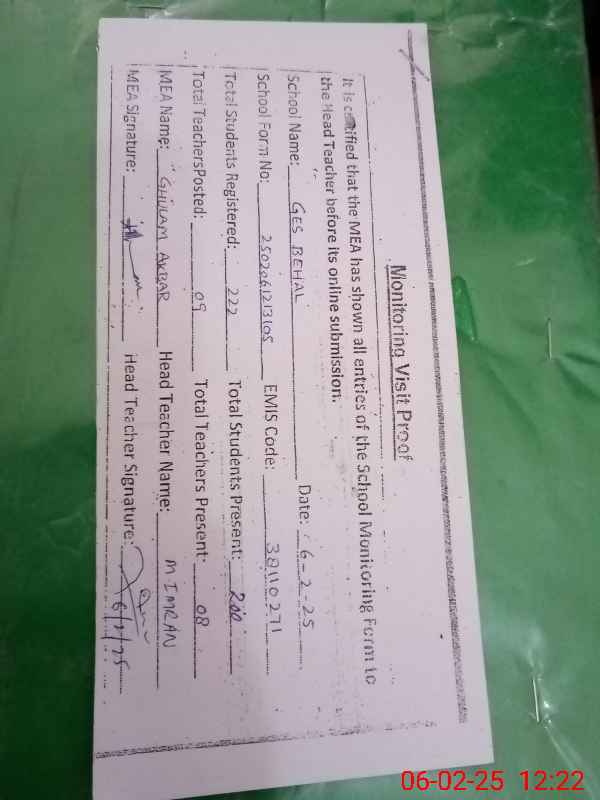 Monitoring Visit Proof
It is certified that the MEA has shown all entries of the School Monitoring Form to
the Head Teacher before its online submission.
School Name: GES BEHAL Date: 6-2-25
School Form No: 2502061213105 EMIS Code: 38110271
Total Students Registered: 222 Total Students Present: 200
Total TeachersPosted: 09 Total Teachers Present: 08
MEA Name: GHULAM AKBAR Head Teacher Name: M IMRAN
MEA Signature: Head Teacher Signature: 6/2/25
06-02-25 12:22